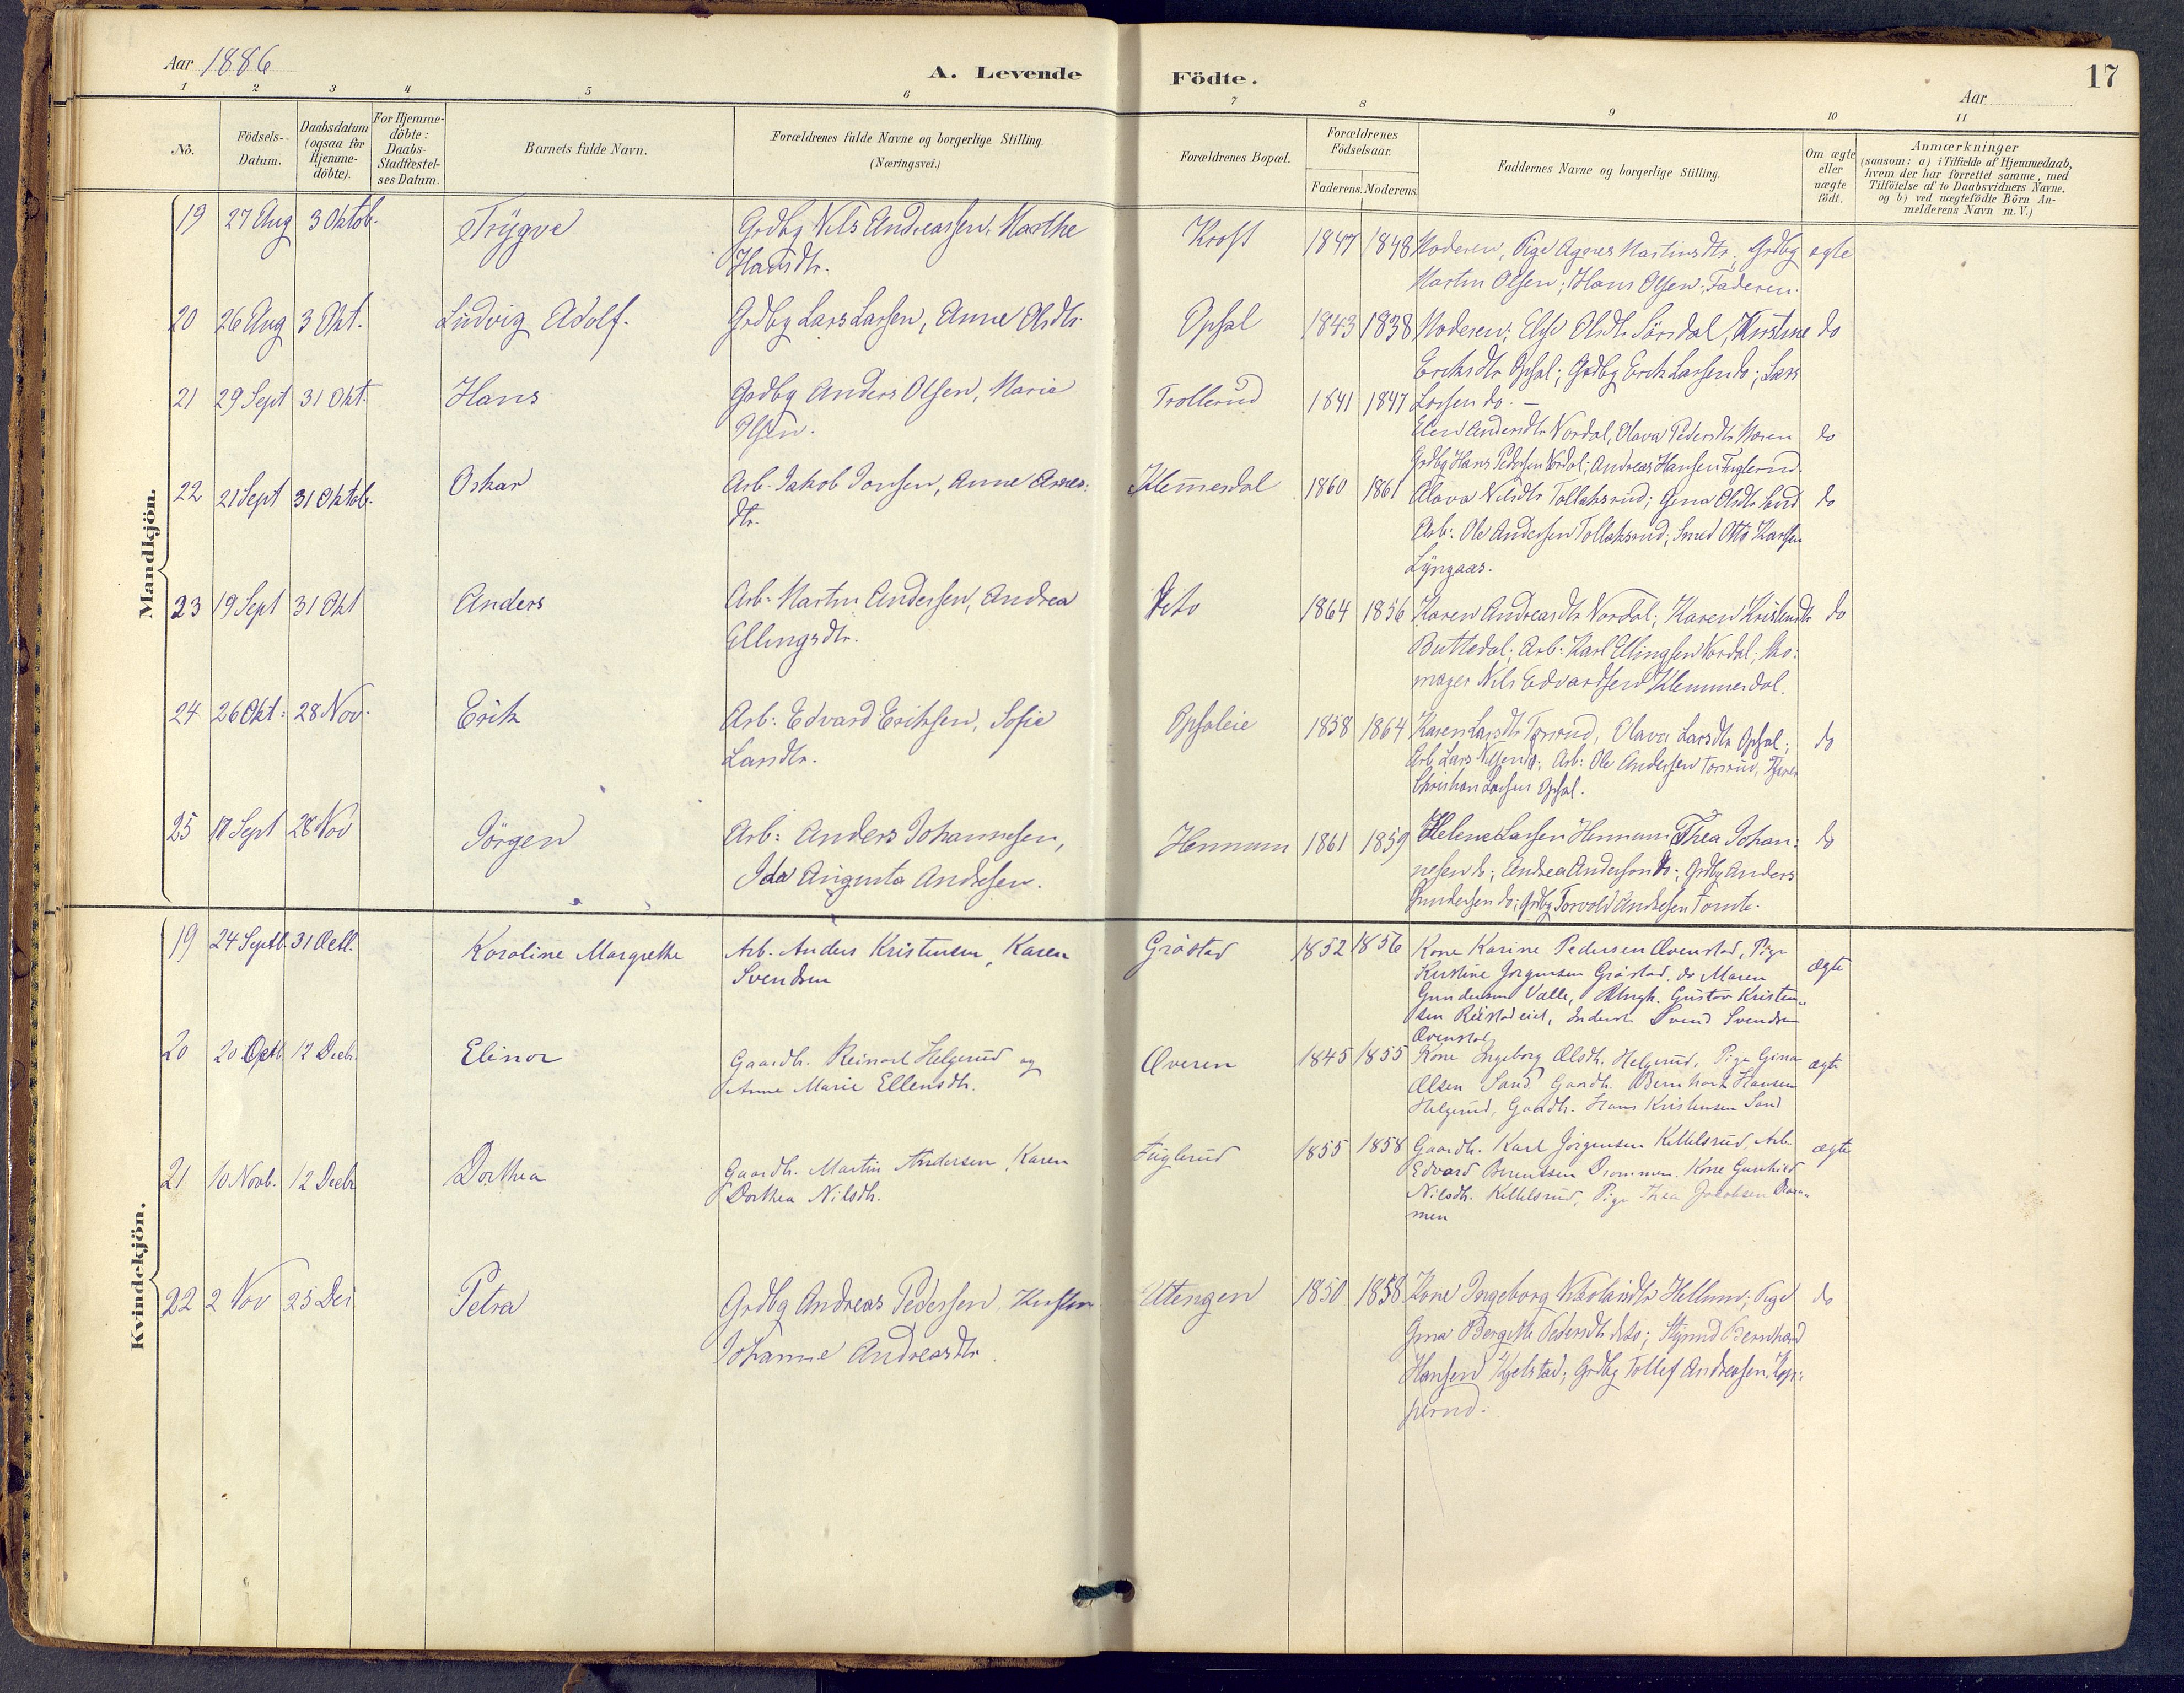 Aar 1886
A. Levende Födte.
17
Aar
1 2 3 4 5 6 7 8 9 10 11
No.
Födsels-Datum.
Daabsdatum (ogsaa for Hjemme-döbte).
For Hjemme-döbte: Daabs-Stadfæstel-ses Datum.
Barnets fulde Navn.
Forældrenes fulde Navne og borgerlige Stilling. (Næringsvei.)
Forældrenes Bopæl.
Forældrenes Födselsaar.
Faderens. Moderens.
Faddernes Navne og borgerlige Stilling.
Om ægte eller uægte födt.
Anmærkninger
(saasom: a) i Tilfælde af Hjemmedaab, hvem der har forrettet samme, med Tilföielse af to Daabsvidners Navne. og b) ved uægtefödte Börn An-melderens Navn m.V.)
Mandkjön.
19 27 Aug 3 Oktob. Trygve Grdbg Nils Andreassen, Marthe Kroft 1847 1848 Moderen, Pige Agnes Martinsdtr; Grdbg egte
Hansdtr. Martin Olsen; Hans Olsen; Faderen.
20 26 Aug 3 Okt. Ludvig Adolf. Grdbg Lars Larsen, Anne Olsdtr Opsal 1843 1838 Moderen; Else Olsdtr Sörsdal, Kristine do
Eriksdtr Opsal; Grdbg Erik Larsen do; Lars
Larsen do. -
21 29 Sept 31 Okt. Hans Grdbg Anders Olsen, Marie Trollerud 1841 1847
Olsen. Elen Andersdtr Nordal, Olava Pedersdtr Moren do
Grdbg Hans Pedersen Nordal; Andreas Hansen Fuglerud.
22 21 Sept 31 Oktob. Oskar Arb. Jakob Jonsen, Anne Arnes: Klemmesdal 1860 1861 Olava Nilsdtr Tollaksrud; Gina Olsdtr Sand do
dtr. Arb: Ole Andersen Tollaksrud; Smed Otto Karlsen
Lyngaas.
23 19 Sept 31 Okt Anders Arb: Martin Andersen, Andrea Deto 1864 1856 Karen Andreasdtr Nordal; Karen Kristendtr do
Ellingsdtr. Buttedal; Arb: Karl Ellingsen Nordal; Sko:
mager Nils Edvardsen Klemmesdal.
24 26 Okt: 28 Nov. Erik Arb: Edvard Eriksen, Sofie Opsaleie 1858 1864 Karen Larsdtr Torsrud, Olava Larsdtr Opsal; do
Larsdtr. Arb. Lars Nilsen do; Arb: Ole Andersen Torsrud,
Christian Larsen Opsal.
25 17 Sept 28 Nov Jörgen Arb: Anders Johannesen, Hennum 1861 1859 Helene Larsen Hennum; Thea Johan: do
Ida Augusta Andresen. nesen do; Andrea Anderson do; Grdbg Anders
Gundersen do; Grdbg Torvold Andresen Tomte.
Kvindekjön.
19 24 Septb. 31 Octb. Karoline Margrethe Arb. Anders Kristensen, Karen Gråstad 1852 1856 Kone Karine Pedersen Ovenstad, Pige ægte
Svendsen Kristine Jorgensen Gråstad. do Maren
Gundersen Valle, Ungk. Gustav Kristen-
sen Reistad eiet, Inderst Svend Svendsen
Ovenstad
20 20 Octb 12 Decbr. Elinor Gaardb. Reinart Helgerud og Overen 1845 1855 Kone Ingeborg Olsdtr. Helgerud, Pige Gina ægte
Anne Marie Ellensdtr. Olsen Sand. Gaardb. Bernhart Hansen
Helgerud, Gaardb. Hans Kristensen Sand
21 10 Novb. 12 Decbr Dorthea Gaardb. Martin Andersen, Karen Fuglerud 1855 1858 Gaardb. Karl Jörgensen Kittilsrud, Arb. ægte
Dorthea Nilsdtr. Edvard Berentsen Drammen. Kone Gunhild
Nilsdtr. Kittilsrud, Pige Thea Jakobsen Dram-
men
22 2 Nov 25 Des Petra Grdbg Andreas Pedersen, Kirsten Utengen 1850 1858 Kone Ingeborg Nikolaisdtr Hellum; Pige do
Johanne Andreasdtr. Gina Bergitte Pedersdtr deto; Styrmd Bernhard
Hansen Kjelstad; Grdbg Tollef Andreasen, Kop:
perud.